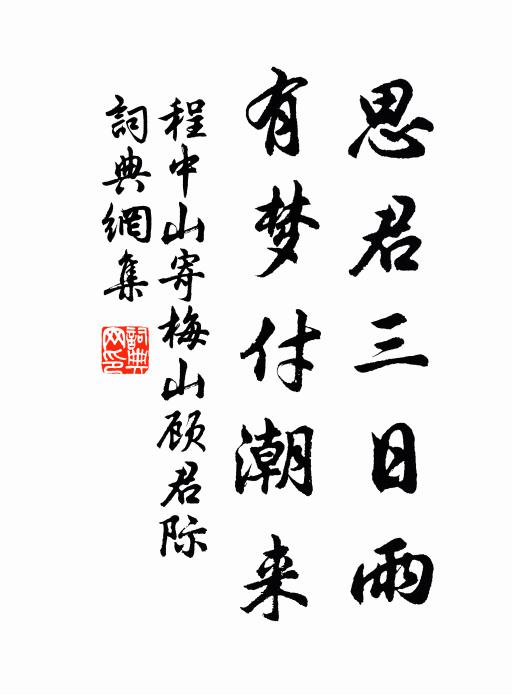 思君三日雨
有梦付潮来
程中山寄梅山顾君际
詞典網集
詞典网印